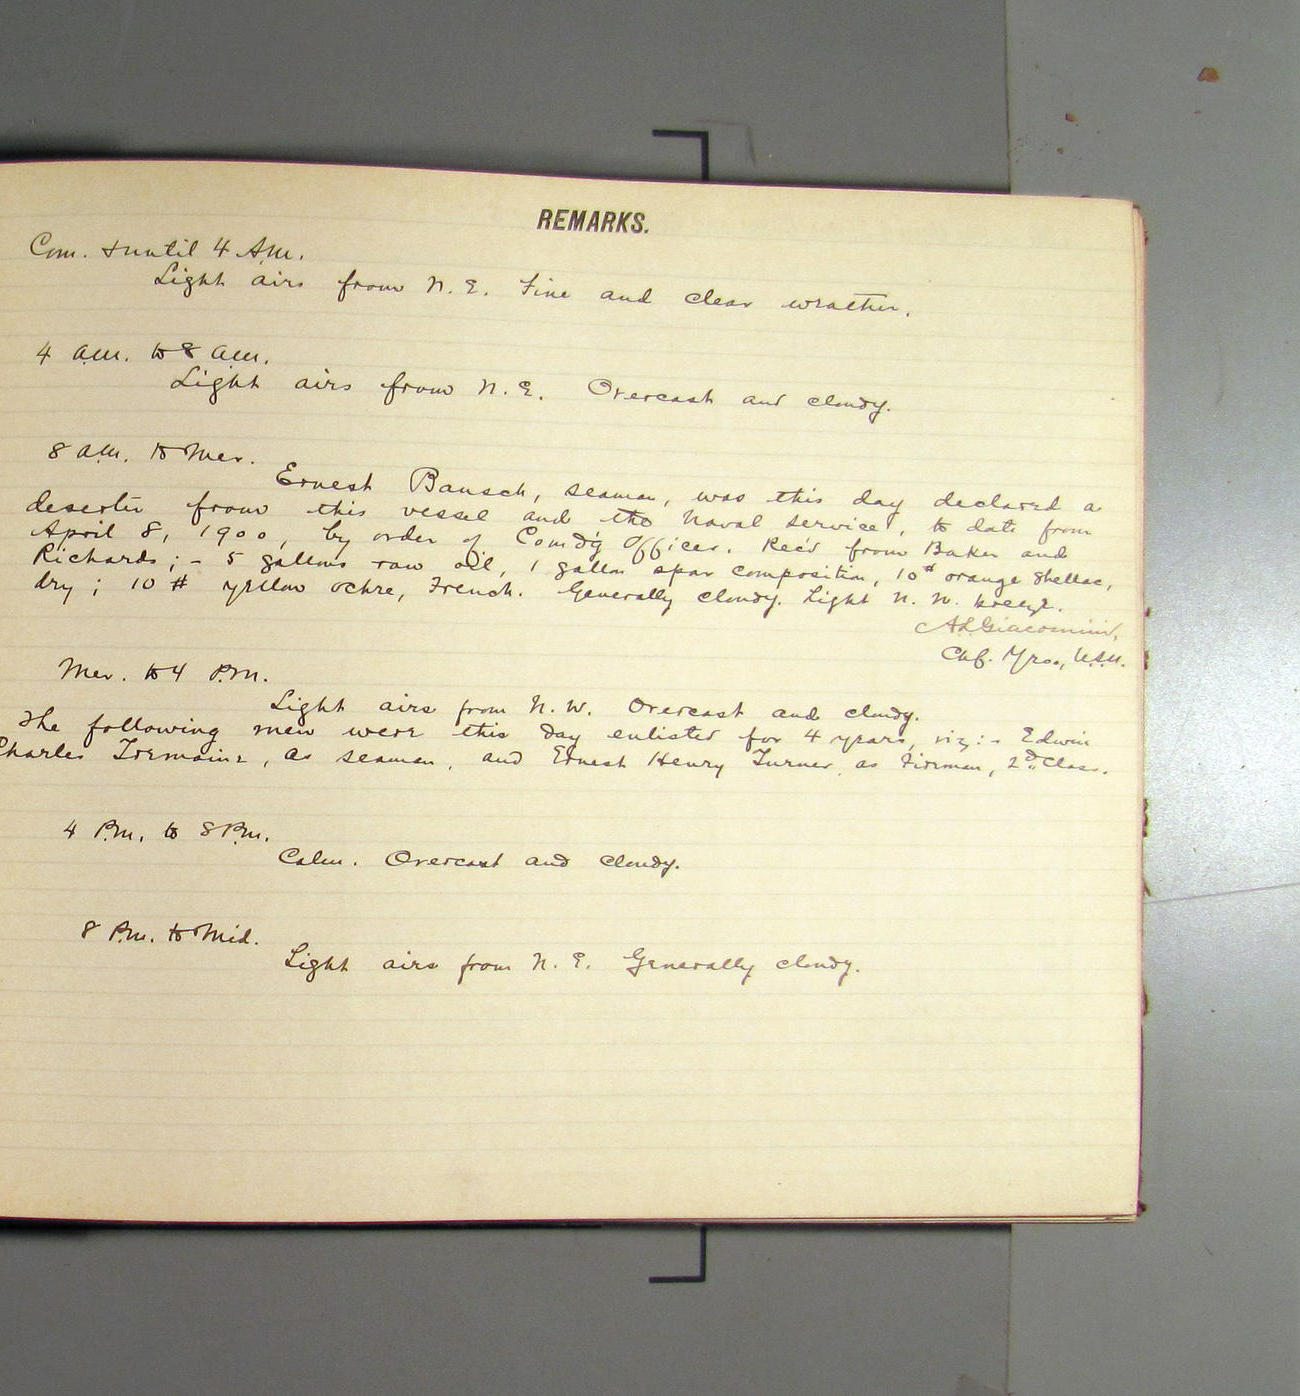 REMARKS.
Com. & until 4 A.m.
Light airs from N. E. Fine and clear weather.
4 a.m. to 8 a.m.
Light airs from N. E. Overcast and cloudy.
8 a.m. to Mer.
Ernest Bausch, seaman, was this day declared a
deserter from this vessel and the Naval Service, to date from
April 8, 1900, by order of Comd'g Officer. Rec'd from Baker and
Richards; - 5 gallons raw oil, 1 gallon spar composition, 10# orange Shellac,
dry; 10 # yellow ochre, French. Generally cloudy. Light N. W. breeze.
A L Giacomini,
Chf. Yeo., U.S.N.
Mer. to 4 P.m.
Light airs from N. W. Overcast and cloudy.
The following men were this day enlisted for 4 years, viz: - Edwin
Charles Tremaine, as seaman, and Ernest Henry Turner, as Fireman, 2d. Class.
4 P.m. to 8 P.m.
Calm. Overcast and cloudy.
8 P.m. to Mid.
Light airs from N. E. Generally cloudy.